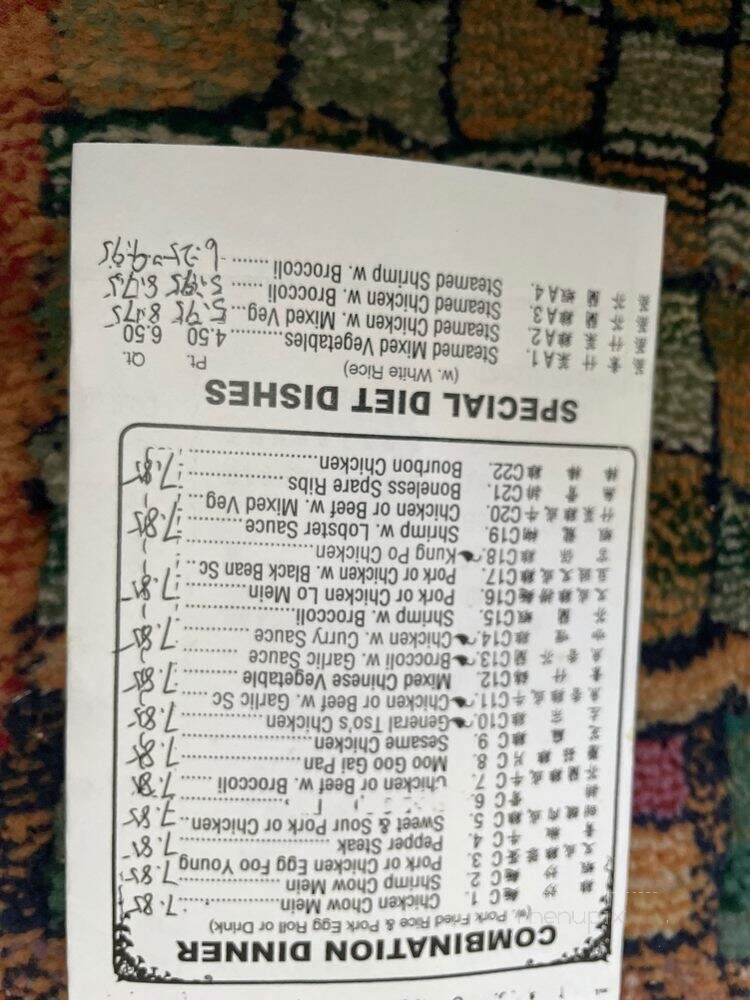 COMBINATION DINNER
(w. Pork Fried Rice & Pork Egg Roll or Drink)
雞 炒 麵 C 1. Chicken Chow Mein 7.85
蝦 炒 麵 C 2. Shrimp Chow Mein 7.85
叉 或 雞 蓉 蛋 C 3. Pork or Chicken Egg Foo Young
青 椒 牛 C 4. Pepper Steak 7.85
甜 酸 肉 或 雞 C 5. Sweet & Sour Pork or Chicken 7.85
C 6.
芥 蘭 雞 或 牛 C 7. Chicken or Beef w. Broccoli 7.85
蘑 菇 雞 片 C 8. Moo Goo Gai Pan 7.85
芝 麻 雞 C 9. Sesame Chicken
左 宗 雞 C10. General Tso's Chicken 7.85
魚 香 雞 或 牛 C11. Chicken or Beef w. Garlic Sc
素 什 錦 C12. Mixed Chinese Vegetable 7.85
魚 香 芥 蘭 C13. Broccoli w. Garlic Sauce
咖 喱 雞 C14. Chicken w. Curry Sauce 7.85
芥 蘭 蝦 C15. Shrimp w. Broccoli
叉 或 雞 撈 麵 C16. Pork or Chicken Lo Mein 7.85
豆 豉 叉 或 雞 C17. Pork or Chicken w. Black Bean Sc
宮 保 雞 C18. Kung Po Chicken
蝦 龍 糊 C19. Shrimp w. Lobster Sauce 7.85
什 菜 雞 或 牛 C20. Chicken or Beef w. Mixed Veg
無 骨 排 C21. Boneless Spare Ribs
棒 棒 雞 C22. Bourbon Chicken 7.85
SPECIAL DIET DISHES
(w. White Rice) Pt. Qt.
蒸 素 什 菜 A1. Steamed Mixed Vegetables 4.50 6.50
蒸 什 菜 雞 A2. Steamed Chicken w. Mixed Veg 5.95 8.75
蒸 芥 蘭 雞 A3. Steamed Chicken w. Broccoli 5.95 8.75
蒸 芥 蘭 蝦 A4. Steamed Shrimp w. Broccoli 6.25 9.95
menupix